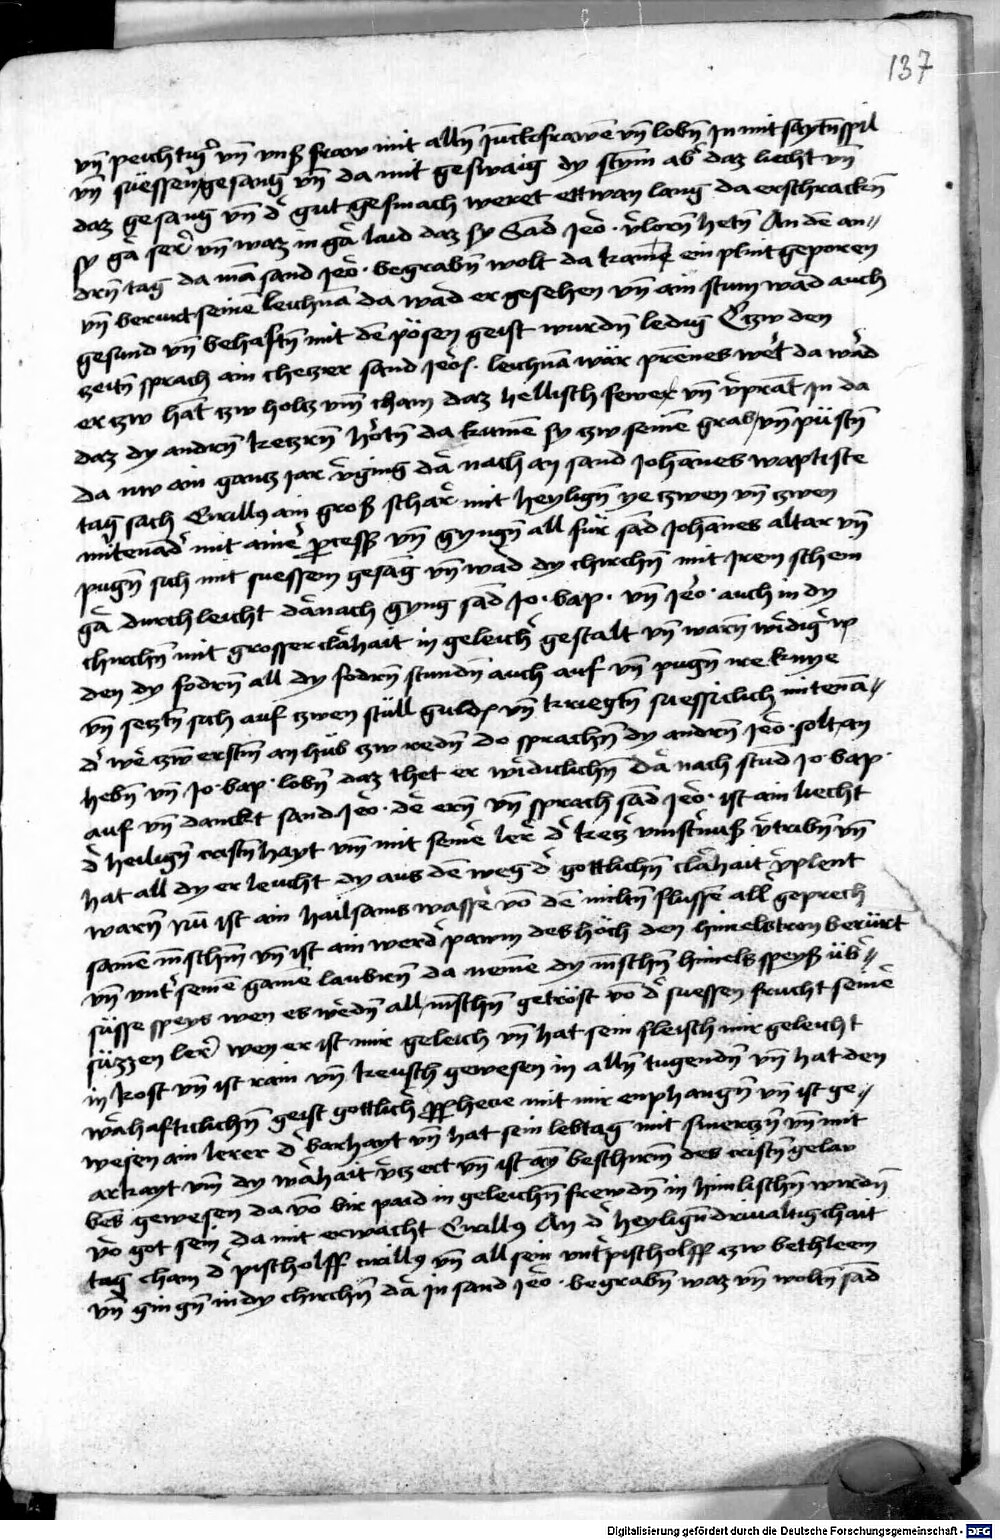 137
vn̄ peichtig̾ vn̄ vnß fraw mit alln̄ jūckfrawē vn̄ lobn̄ jn mit saytn̄spil
vn̄ süessen̄ gesang vn̄ da mit geswaig dy stym ab̾ daz liecht vn̄
daz gesang vn̄ d̾ gut gesmach weret ettwan lang da erschrackn̄
sy gā ser̾ vn̄ waz in gā laid daz sy Sand jēo · v̾lorn̄ hetn̄ An dē an⸗
drn̄ tag da mā sand jēo · begrabn̄ wolt da kame ein plint geporen
vn̄ berurt seinē leichnā da ward er gesehen vn̄ ain stum ward auch
gesund vn̄ behaftn̄ mit dē pösen geist wurdn̄ ledig Czw den
zeitn̄ sprach ain chetzer sand jēo · leichnā wār prēnes wert da ward
er czw hāt czw holtz vnd cham daz hellisch fewer vn̄ v̾prāt jn da
daz dy andrn̄ ketzrn̄ hōrtn̄ da kumē sy czw seinē grab vn̄ püstn̄
da nw ain gantz jar v̾ging dā nach an sand johānes waptiste
tag sach Cirillꝯ ain groß schar mit heylign̄ ye czwen vn̄ czwen
mitenād̾ mit ainē ꝓceß vn̄ gyngn̄ all für sād johānes altar vn̄
pugn̄ sich mit suessem gesāg vn̄ ward dy chirchn̄ mit jrem schein
gā durchleicht dānach gyng sād jo · bap · vn̄ jēo · auch in dy
chirchn̄ mit grosser clārhait in geleich̾ gestalt vn̄ warn̄ wirdig̾
den dy fodrn̄ all dy fodrn̄ stundn̄ auch auf vn̄ pugn̄ ire knye
vn̄ setztn̄ sich auf czwen stüll guldē vn̄ kriegtn̄ suessiclich mitenā⸗
d̾ wer czwm erstn̄ an hüb czw redn̄ do sprachn̄ dy andrn̄ jēo · solt an
hebn̄ vn̄ jo · bap · lobn̄ daz thet er wirdiclichn̄ dā nach stund jo · bap ·
auf vn̄ danckt sand jēo · dē ern̄ vn̄ sprach sād jēo · ist ain liecht
d̾ heilign̄ cristn̄hayt vn̄ mit seinē ler̾ d̾ ketz̾ vinst̾nuß v̾tribn̄ vn̄
hat all dy er leucht dy aus dē weg d̾ gottlichn̄ clārhait v̾plent
warn̄ nū ist ain hailsams wasser vō dē miltn̄ flussē all geprech
samē mēschn̄ vn̄ ist ain werd̾ pawm des höch den himelstron berürt
vn̄ vnt̾ seinē gamē laubrn̄ da nemē dy mēschn̄ himels speyß üb̾⸗
süsse speys wen es werdn̄ all mēschn̄ getröst vō d̾ suessen frucht seinē
süzzen ler̾ wen er ist mir geleich vn̄ hat sein fleisch mir geleicht
in kost vn̄ ist rain vn̄ keusch gewesen in alln̄ tugendn̄ vn̄ hat den
wārhafticlichn̄ geist gottlich̾ ꝓphecie mit mir enphangn̄ vn̄ ist ge⸗
wesen ain lerer d̾ barhayt vn̄ hat sein lebtag mit smerczn̄ vn̄ mit
arkayt vn̄ dy wārhait v̾czert vn̄ ist ay̾ beschirm̄ des cristn̄ gelau
bēs gewesen da vō bir paid in geleichn̄ frewdn̄ in himlischn̄ wirdn̄
vō got sein da mit erwacht Cirillꝯ An d̾ heylign̄ driualtigchait
tag cham d̾ pischolff cirillꝯ vn̄ all sein vnt̾pischolff czw bethleem
vn̄ gingn̄ in dy chirchn̄ dā jn sand jēo · begrabn̄ waz vn̄ woltn̄ sād
Digitalisierung gefördert durch die Deutsche Forschungsgemeinschaft - DFG